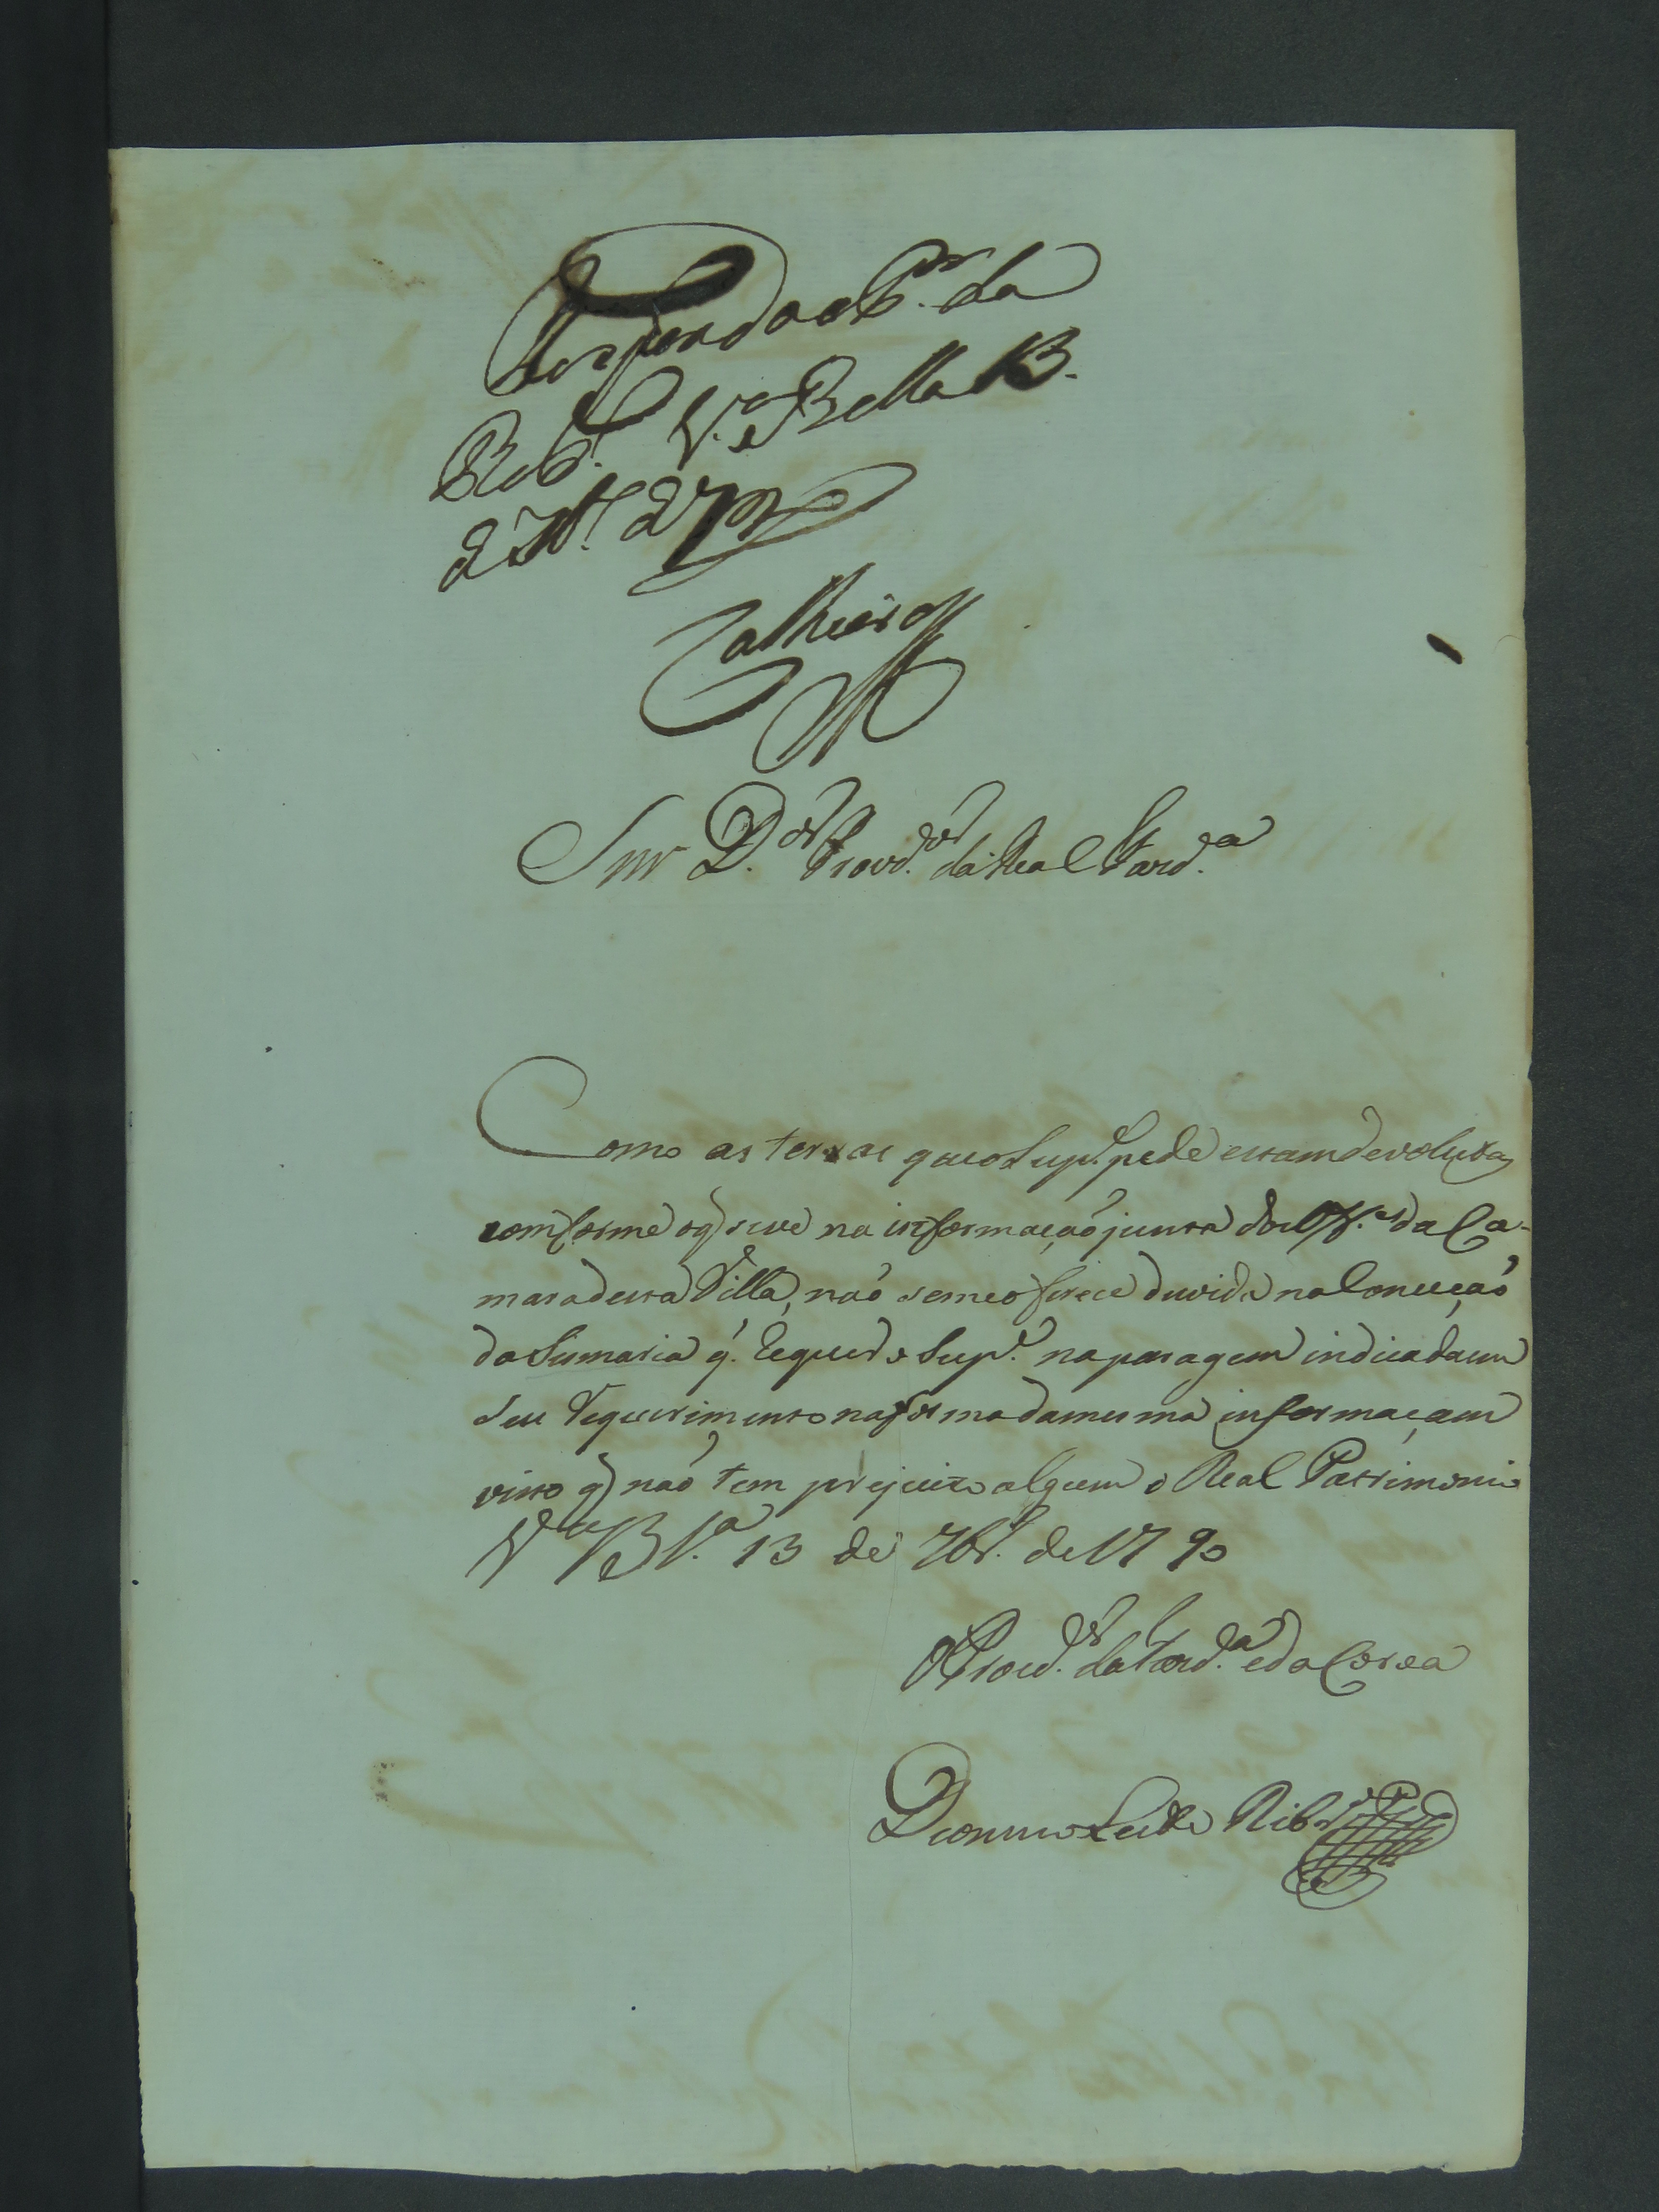 Responda o P.or da
Rl. V.a Bella 13
de 7br.o de 1790
Snr D.or Provd.or da Real Fazd.a
Como as terras que o Sup.e pede estam devolutas
comforme o q se ve na informação junta dos Off.es da Ca-
mara desta Villa, não se me oferece duvida na Conceção
da Sismaria q. Requer o Sup.e na paragem indicada em
seu Requerimento na forma da mesma informaçam
visto q não tem prejuizo algum o Real Patrimonio
V.a B.a 13 de 7br.o de 1790
O Procd.or da Fazd.a e da Coroa
Dionizio Leite Ribr.o